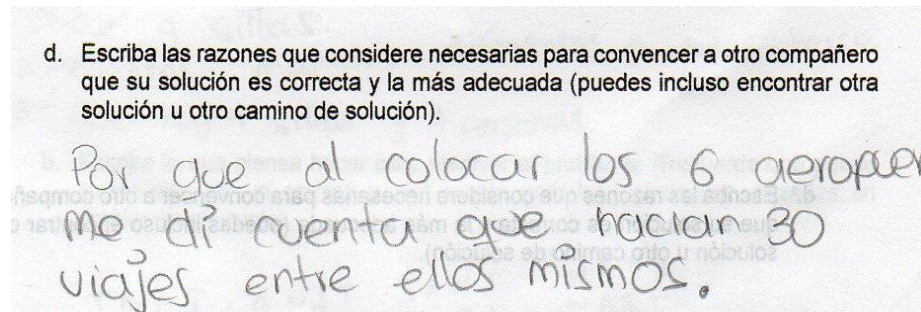 d. Escriba las razones que considere necesarias para convencer a otro compañero
que su solución es correcta y la más adecuada (puedes incluso encontrar otra
solución u otro camino de solución).
Por que al colocar los 6 aeropuer
me di cuenta que hacian 30
viajes entre ellos mismos.